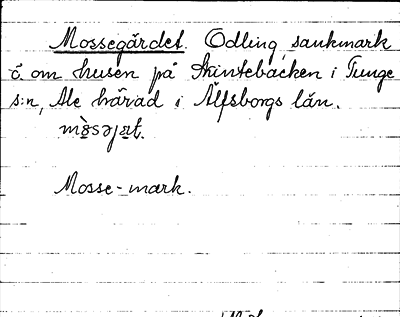 Mossegärdet. Odling, sankmark
ö. om husen på Skintebacken i Tunge
s:n, Ale härad i Älfsborgs län.
Mosse-mark.